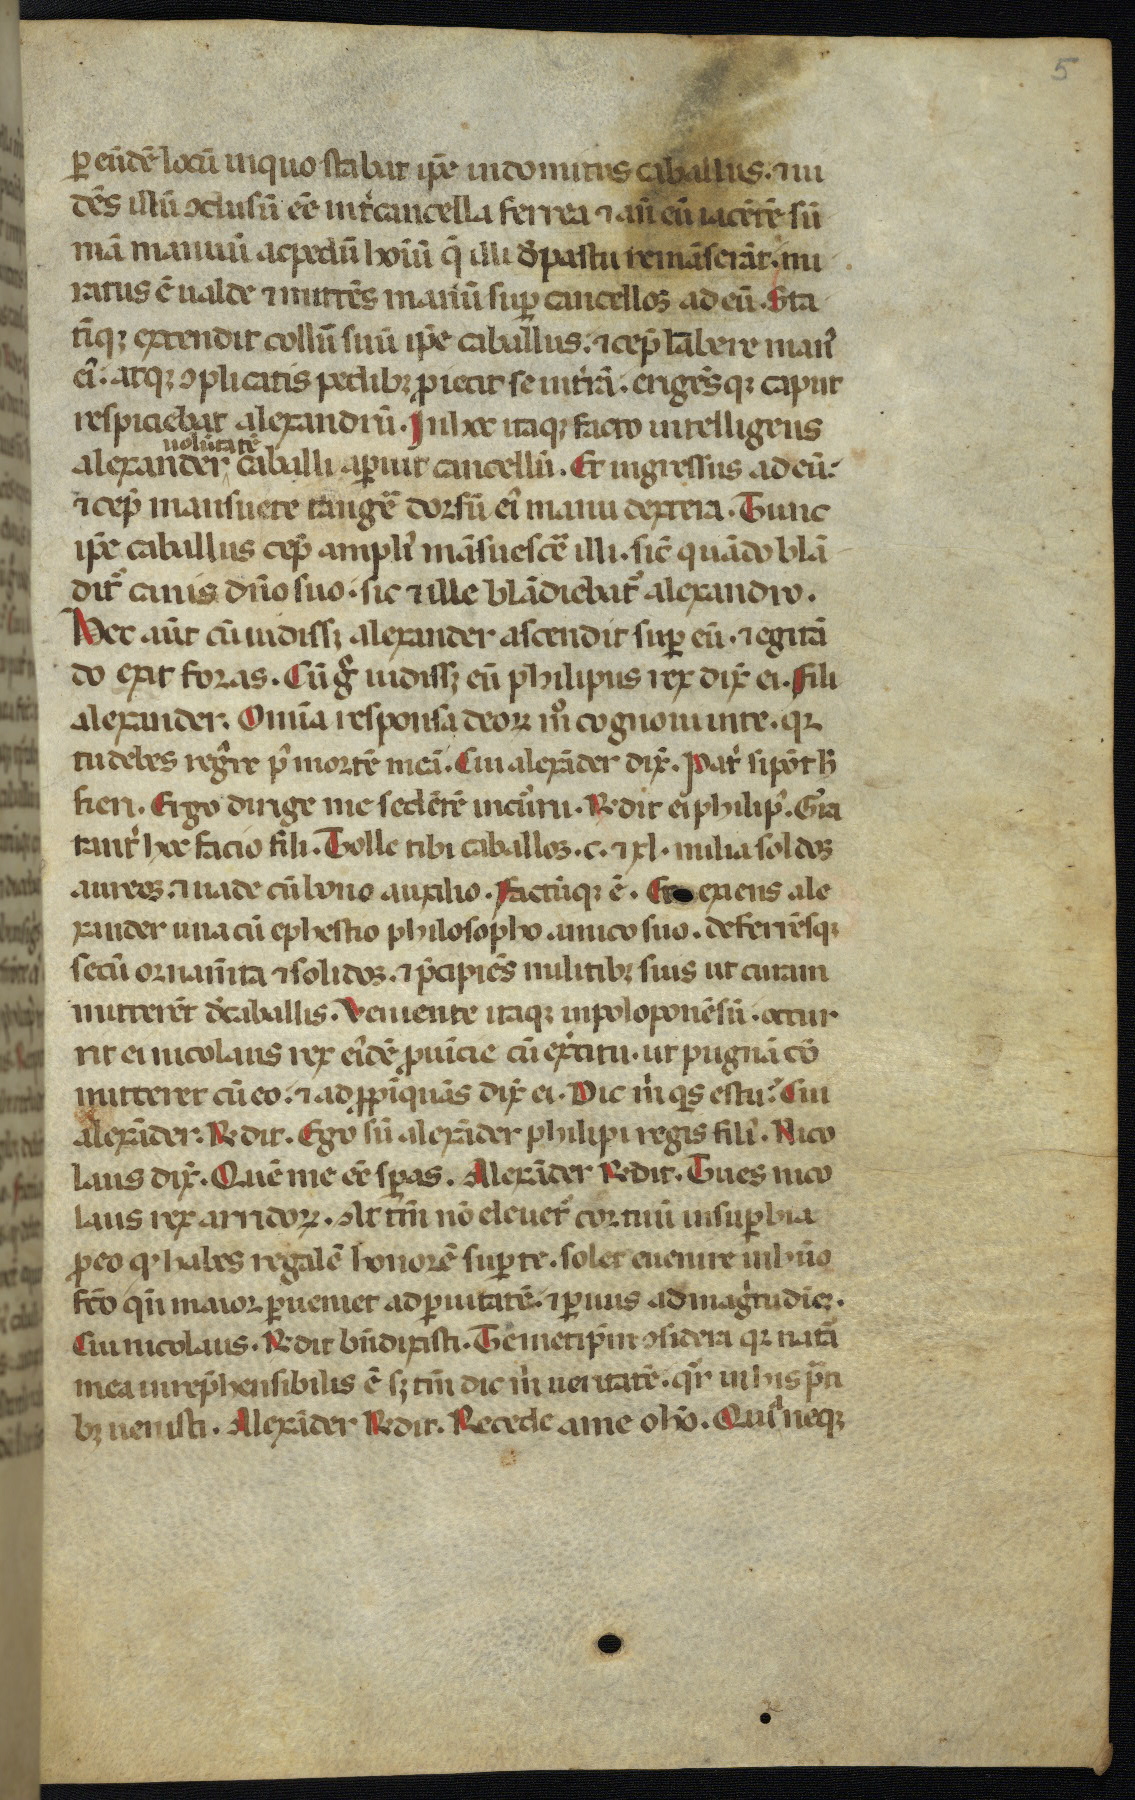 5
ꝑ eūdē locū in quo stabat ip̄e indomitus caballus. ⁊ ui
dēs illū ↄclusū ēe int̓ cancella ferrea ⁊ an̄ eū iacētē sū
mā manuū ac pedū hoīū q̄ illi d̓ pastu remāserāt. mi
ratus ē ualde ⁊ mittēs manū suꝑ cancelloꝫ ad eū. Sta
tīqꝫ extendit collū suū ip̄e caballus. ⁊ cep̄ lābere man̄
ei᷒. atqꝫ ↄplicatis pedibꝫ ꝓiecit se in t̓rā. erigēsqꝫ caput
respiciebat alexandrū. In hoc itaqꝫ facto intelligens
uolūtatē
alexander caballi aꝑuit cancellū. Et ingressus ad eū.
⁊ cep̄ mansuete tangē dorsū ei᷒ manu dextera. Tunc
ip̄e caballus cep̄ ampli᷒ māsuescē illi. sic̄ quādo blā
dit᷑ canis dn̄o suo. sic ⁊ ille blādiebat᷑ alexandro.
Hec aut̄ cū uidissꝫ alexander ascendit suꝑ eū. ⁊ egitā
do exit foras. Cū g̊ uidissꝫ eū philipus rex dix̄ ei. Fili
alexander. Omīa responsa deoꝝ m̊ cognoui in te. qꝛ
tu debes reg̓re p᷒ mortē meā. Cui alexāder dix̄. Pat̓ si pōt h̄
fieri. Ergo dirige me sedētē in cūrru. R̄dit ei philip᷒. Gr̄a
tant̓ hoc facio fili. Tolle tibi caballoꝫ .c. ⁊ xl. milia soldoꝫ
aureoꝫ. ⁊ uade cū bono auxilio. Factūqꝫ ē. Et exiens ale
xander una cū ephestio philosopho amico suo. deferrēsqꝫ
secū ornam̄ta ⁊ solidoꝫ. ⁊ p̄cipiēs militibꝫ suis ut curam
mitterēt d̓ caballis. Veniente itaqꝫ in poloponēsū. occur
rit ei nicolaus rex ei᷒dē ꝓuīcie cū ex̓citu. ut pugnā cō
mitteret cū eo. ⁊ adꝓpīquās dix̄ ei. Dic m̓ qͥs es tu? Cui
alexāder. R̄dit. Ego sū alexāder philipi regis fili᷒. Nico
laus dix̄. Quē me ēe sꝑas. Alexāder R̄dit. Tu es nico
laus rex arridoꝝ. At tn̄ nō eleuet᷑ cor tuū in suꝑbia
ꝓ eo qꝫ habes regalē honorē suꝑ te. solet euenire in hūo
fc̄o qn̄ maior ꝑueniet ad ꝑuitatē. ⁊ ꝑuus ad mag̓tudiēꝫ.
Cui nicolaus. R̄dit bn̄ dixisti. Temetip̄m ↄsidera qꝛ natā
mea inrep̄hensibilis ē sꝫ tn̄ dic m̓ ueritatē. qͬ in his p̄ti
bꝫ uenisti. Alexāder R̄dit. Recede a me o hō. Quiͣ neqꝫ